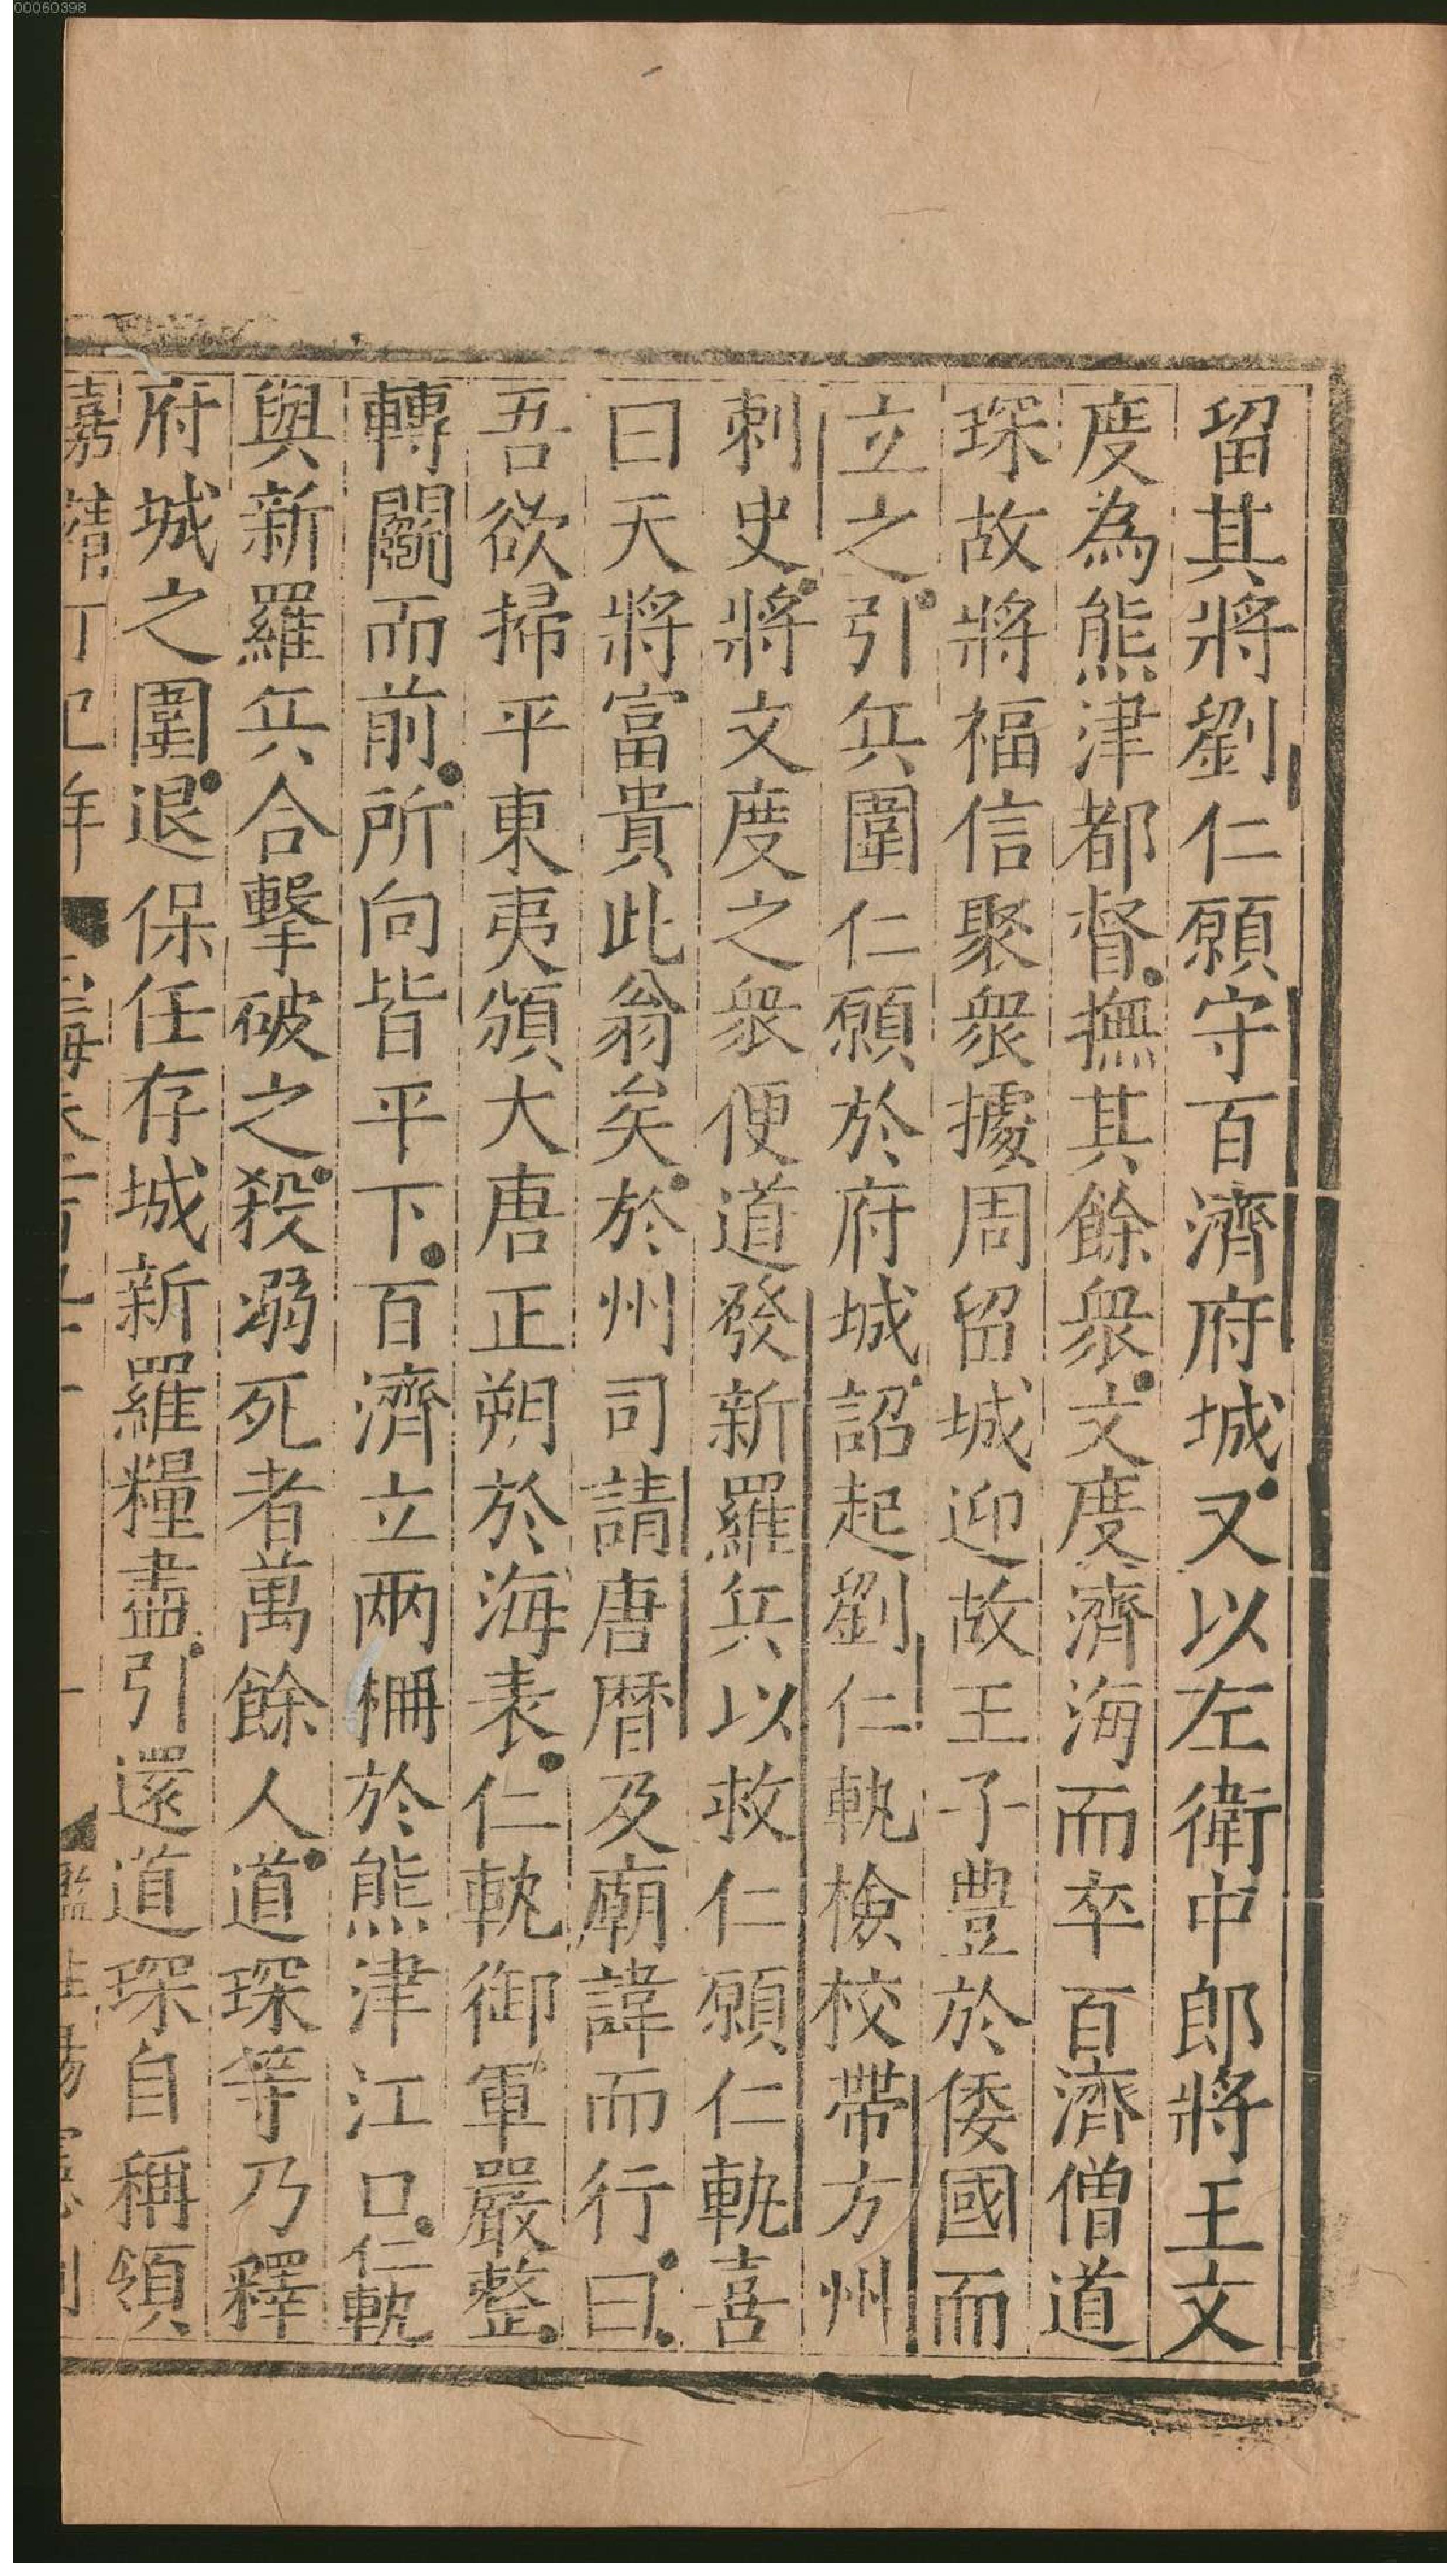 00060398
留其將劉仁願守百濟府城又以左衛中郎將王文
度為熊津都督撫其餘衆文度濟海而卒百濟僧道
琛故將福信聚衆據周留城迎故王子豊於倭國而
立之引兵圍仁願於府城詔起劉仁軌檢校帶方州
刺史將文度之衆便道發新羅兵以救仁願仁軌喜
曰天將富貴此翁矣於州司請唐曆及廟諱而行曰
吾欲掃平東夷頒大唐正朔於海表仁軌御軍嚴整
轉鬭而前所向皆平下百濟立两柵於熊津江口仁軌
與新羅兵合擊破之殺溺死者萬餘人道琛等乃釋
府城之圍退保任存城新羅糧盡引還道琛自稱領
嘉靖丁巳年